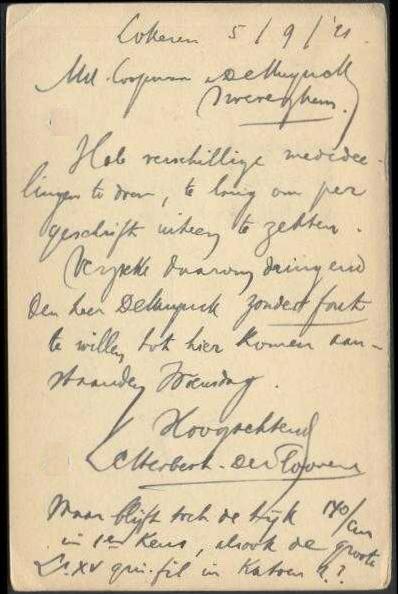 Lokeren 5/9/'21.
Md. Coopman & DeMuynck
Iseghem.
Heb verschillige mededee-
lingen te doen, te lang om per
geschrift uiteen te zetten.
Verzoeke daarom dringend
den heer DeMuynck zonder fout
te willen tot hier komen aan-
staanden Woensdag.
Hoogachtend
Maar blijft toch de tijk 140/cm
in 1en keus, alsook de groote
Ls. XV qui. fil in Katoen